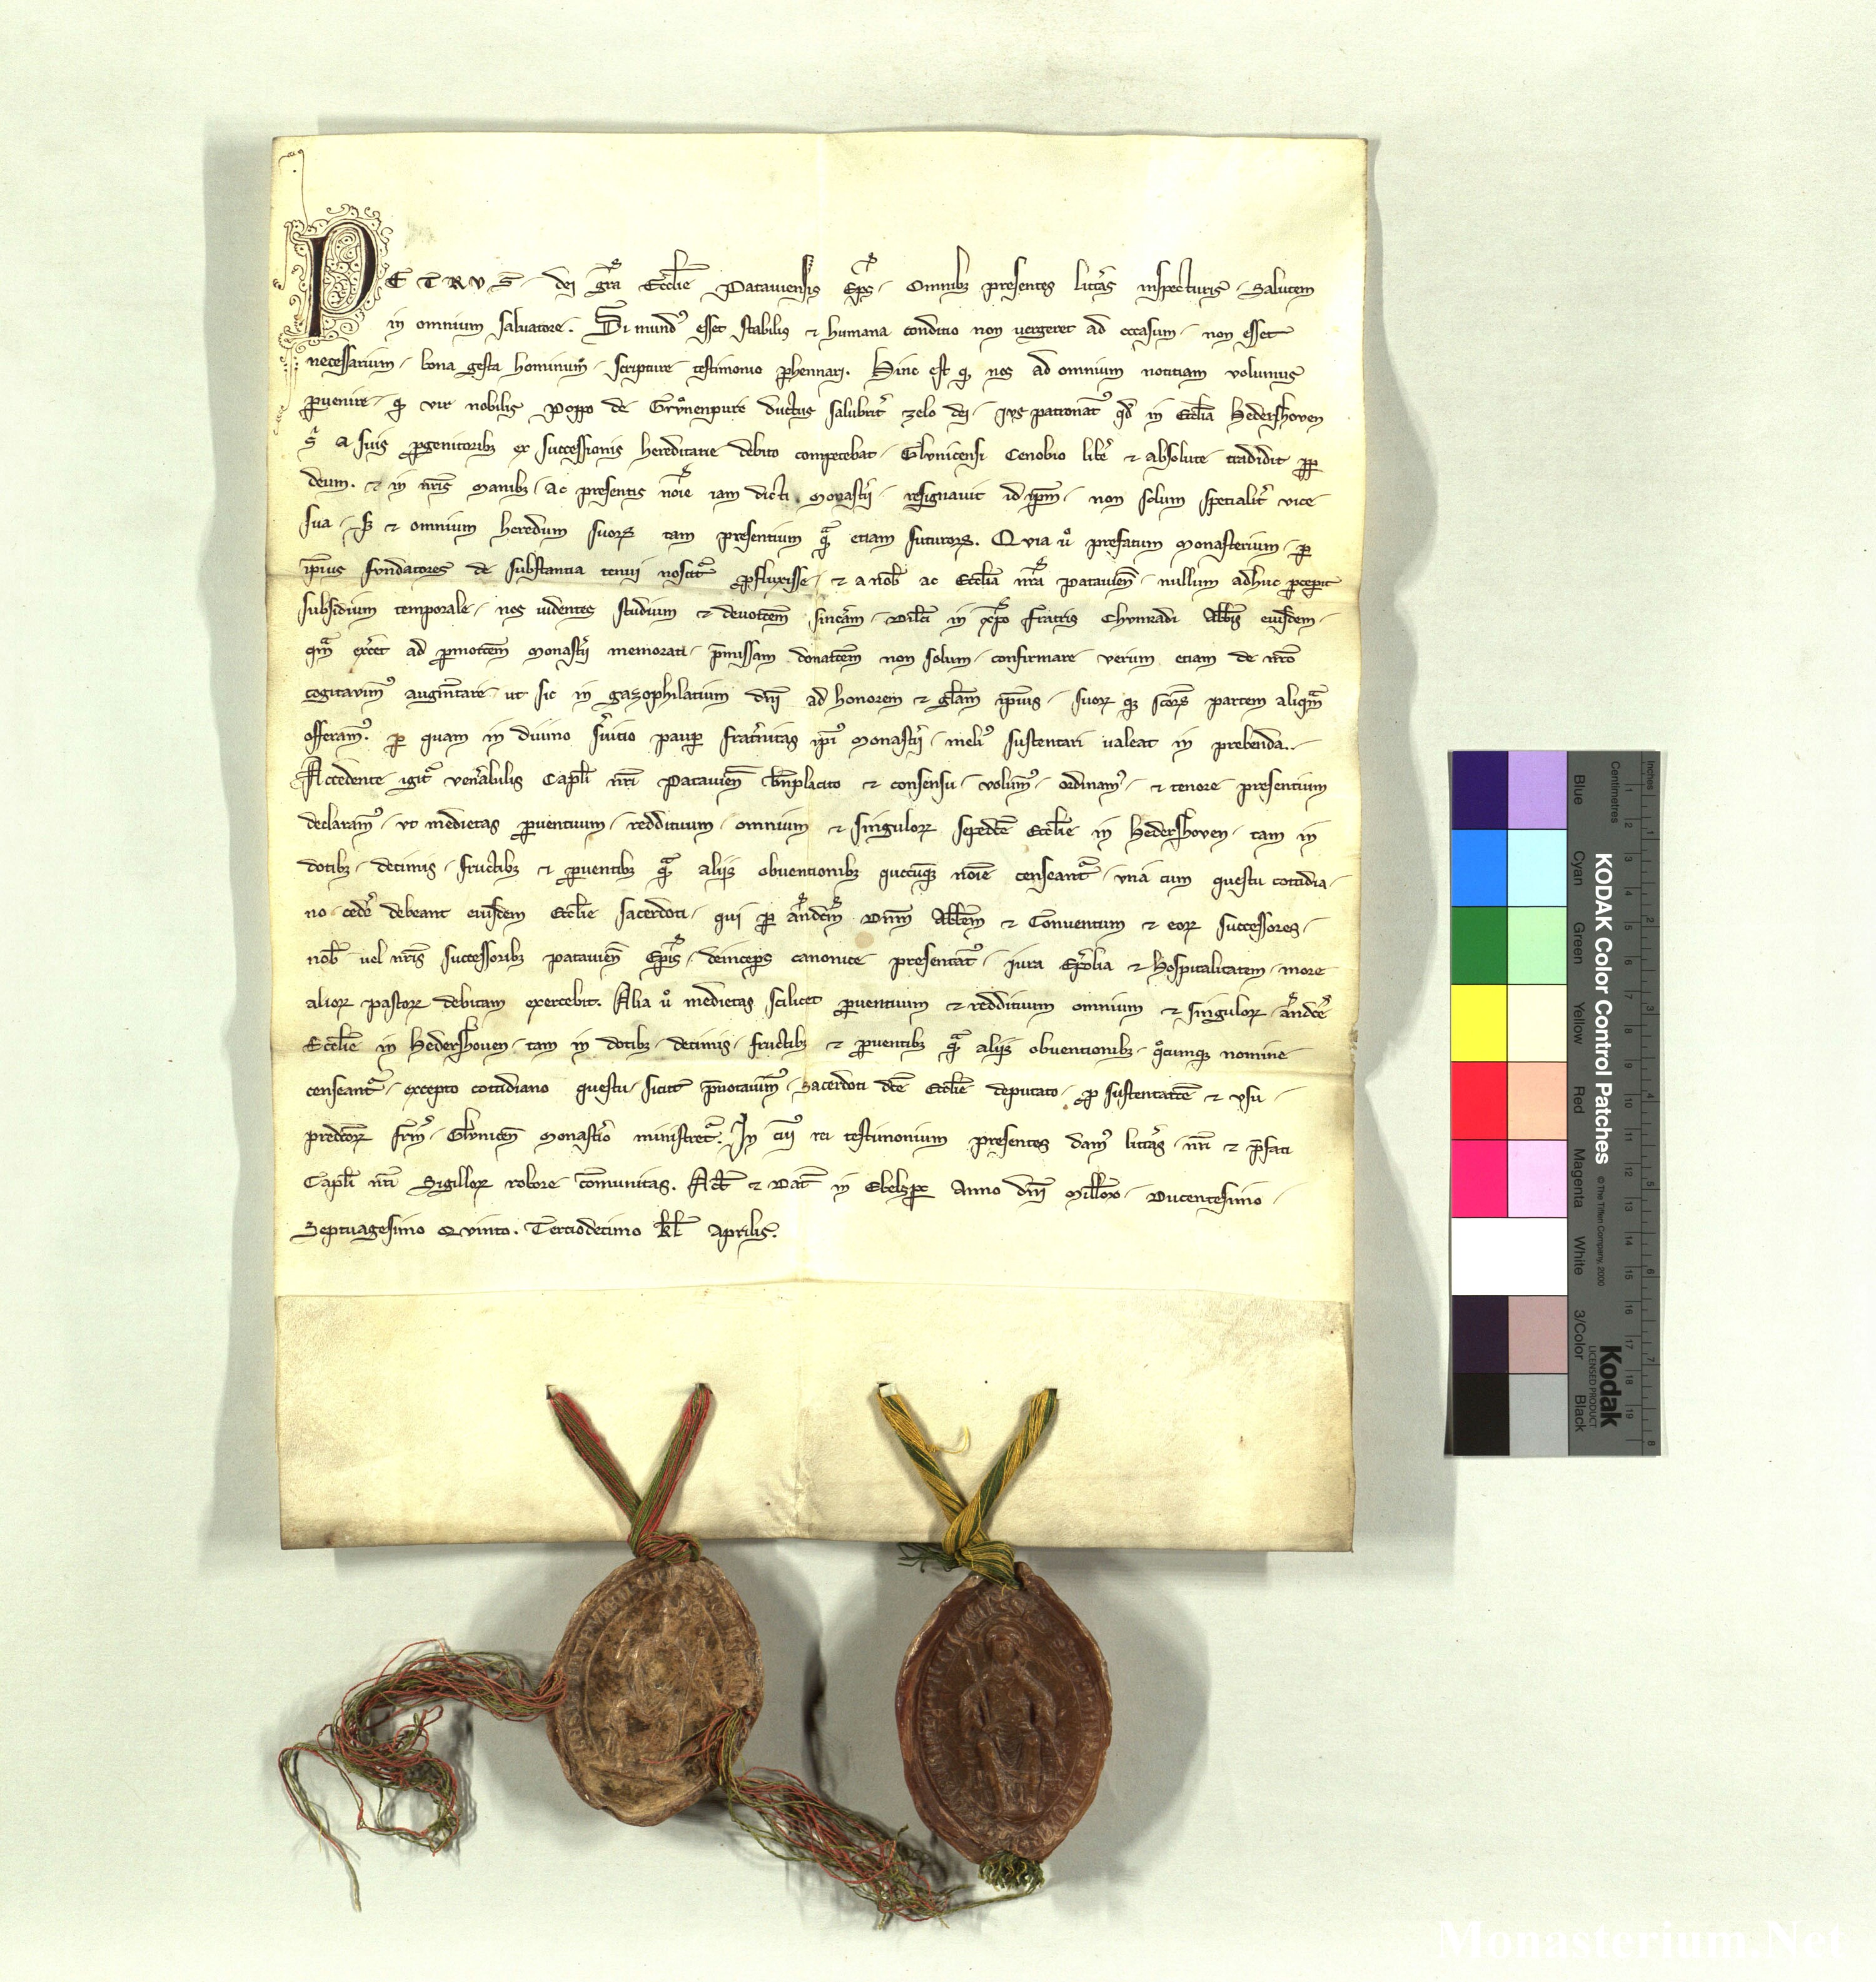 PETRVS dei gr̄a Eccl̄ie Patauiensis Ep̄s. Omnib; presentes litt̄as inspecturis. Salutem
in omnium saluatore. Si mund9 esset stabilis ⁊ humana conditio non uergeret ad occasum. non esset
necessarium. bona gesta hominum. scripture testimonio p̱hennari. Hinc est qd nos ad omnium notitiam volumus
p̱uenire. qd vir nobilis Poppo de Grvͦnenpurc ductus salubrit̾ zelo dei. ius patronat9 qd̄ in Eccl̄ia Hedershoven
a suis ꝓgenitorib; ex successionis hereditarie debito competebat. Glvnicensi Cenobio lib̾e ⁊ absolute tradidit ꝓp̱
deum. ⁊ in nr̄is manib; ac presentis no̅ie iam dicti monast̾ii. resignauit id ip̄m. non solum specialit̾ vice
sua. s; ⁊ omnium heredum suorꝝ tam presentium q̄ᵃ etiam futurorꝝ. Qvia uͦ prefatum Monasterium. p̱
ip̄ius fvndatores de substantia tenui noscit̾ ꝓfluxisse. ⁊ a nob̄ ac Eccl̄ia nr̄a patauien̄. nullum adhuc p̱cepit
subsidium temporale. nos uidentes studium ⁊ deuotōem sinc̾am. Dil̄ci in xp̄o fr̄atris Chvnradi Abb̄is eiusdem.
qᵃm ex̾cet ad ꝓmotōem Monast̾ii memorati. p̄missam donatōem non solum. confirmare verum etiam de nr̄o
cogitavim9 augm̄tare. ut sic in gazophilatium dn̄i ad honorem ⁊ gl̄am ip̄ius. suorꝝ q; sc̄orꝝ partem aliqᵃm
offeram9. p̱ quam in diuino s̾uitio paup̱ frat̾nitas ip̄i9 Monast̾ii. meli9 sustentari ualeat in prebenda.
Accedente igit̾ ven̾abilis Capl̄i nr̄i Patauien̄ bn̄placito ⁊ consensu. volum9. ordinam9. ⁊ tenore presentium
declaram9. vt medietas ꝓuentuum. reddituum. omnium ⁊ singulorꝝ sepedc̄e Eccl̄ie in Hedershoven. tam in
dotib;. decimis. fructib; ⁊ ꝓuentib; qᵃ aliis obuentionib; quocūq; no̅ie censeant̾. vna cum questu cottidia-
no. ced̾e debeant eiusdem Eccl̄ie sacerdoti. qui p̱ Dn̄m Abb̄em ⁊ Conuentum ⁊ eorꝝ successores.
nob̄ uel nr̄is successorib; patauien̄ Ep̄is. deinceps canonice presentat9. iura Ep̄alia ⁊ hospitalitatem. more
aliorꝝ pastorꝝ debitam exercebit. Alia uͦ medietas scilicet ꝓuentuum ⁊ reddituum omnium ⁊ singulorꝝ
Eccl̄ie in Hedershouen. tam in dotib;. decimis. fructib; ⁊ ꝓuentib; qᵃ aliis obuentionib;. qͦcunq; nomine
censeant̾. excepto cottidiano questu. sicut p̄notauim9. Sacerdoti dc̄e Eccl̄ie deputato. ꝓ sustentatōe ⁊ vsu
predc̄orꝝ fr̄m. Glvnicen̄ Monast̾io ministret̾. In cui9 rei testimonium presentes dam9 litt̾as. nr̄i ⁊ p̄fati
Capl̄i nr̄i Sigillorꝝ robore com̄unitas. Act̄ ⁊ Dat̄ in Ebelsp̱c Anno dn̄i Mill̄mo. Ducentesimo.
Septuagesimo Qvinto. Terciodecimo kl̄ Aprilis.
KODAK Color Control Patches
© The Tiffen Company, 2000
Kodak
LICENSED PRODUCT
Inches
Centimetres
Blue
Cyan
Green
Yellow
Red
Magenta
White
3/Color
Black
Monasterium.Net